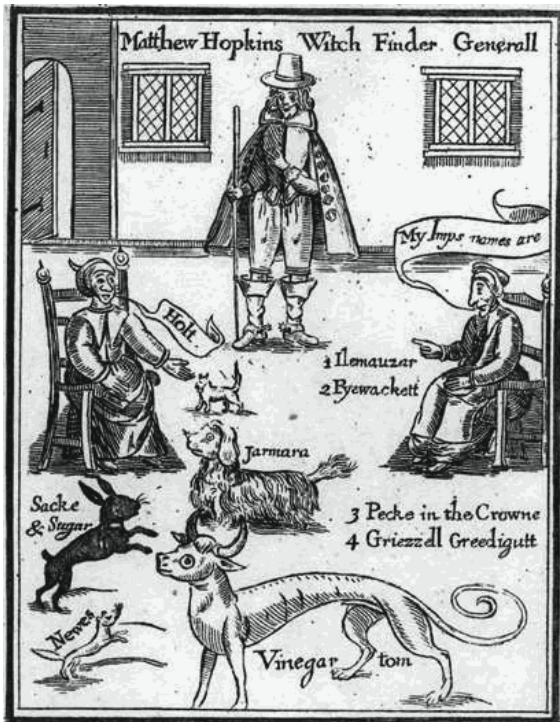 Matthew Hopkins Witch Finder Generall
My Imps names are
Holt.
1 Ilemauzar
2 Pyewackett
Jarmara
Sacke
& Sugar
3 Pecke in the Crowne
4 Griezzell Greedigutt
Newes
Vinegar tom